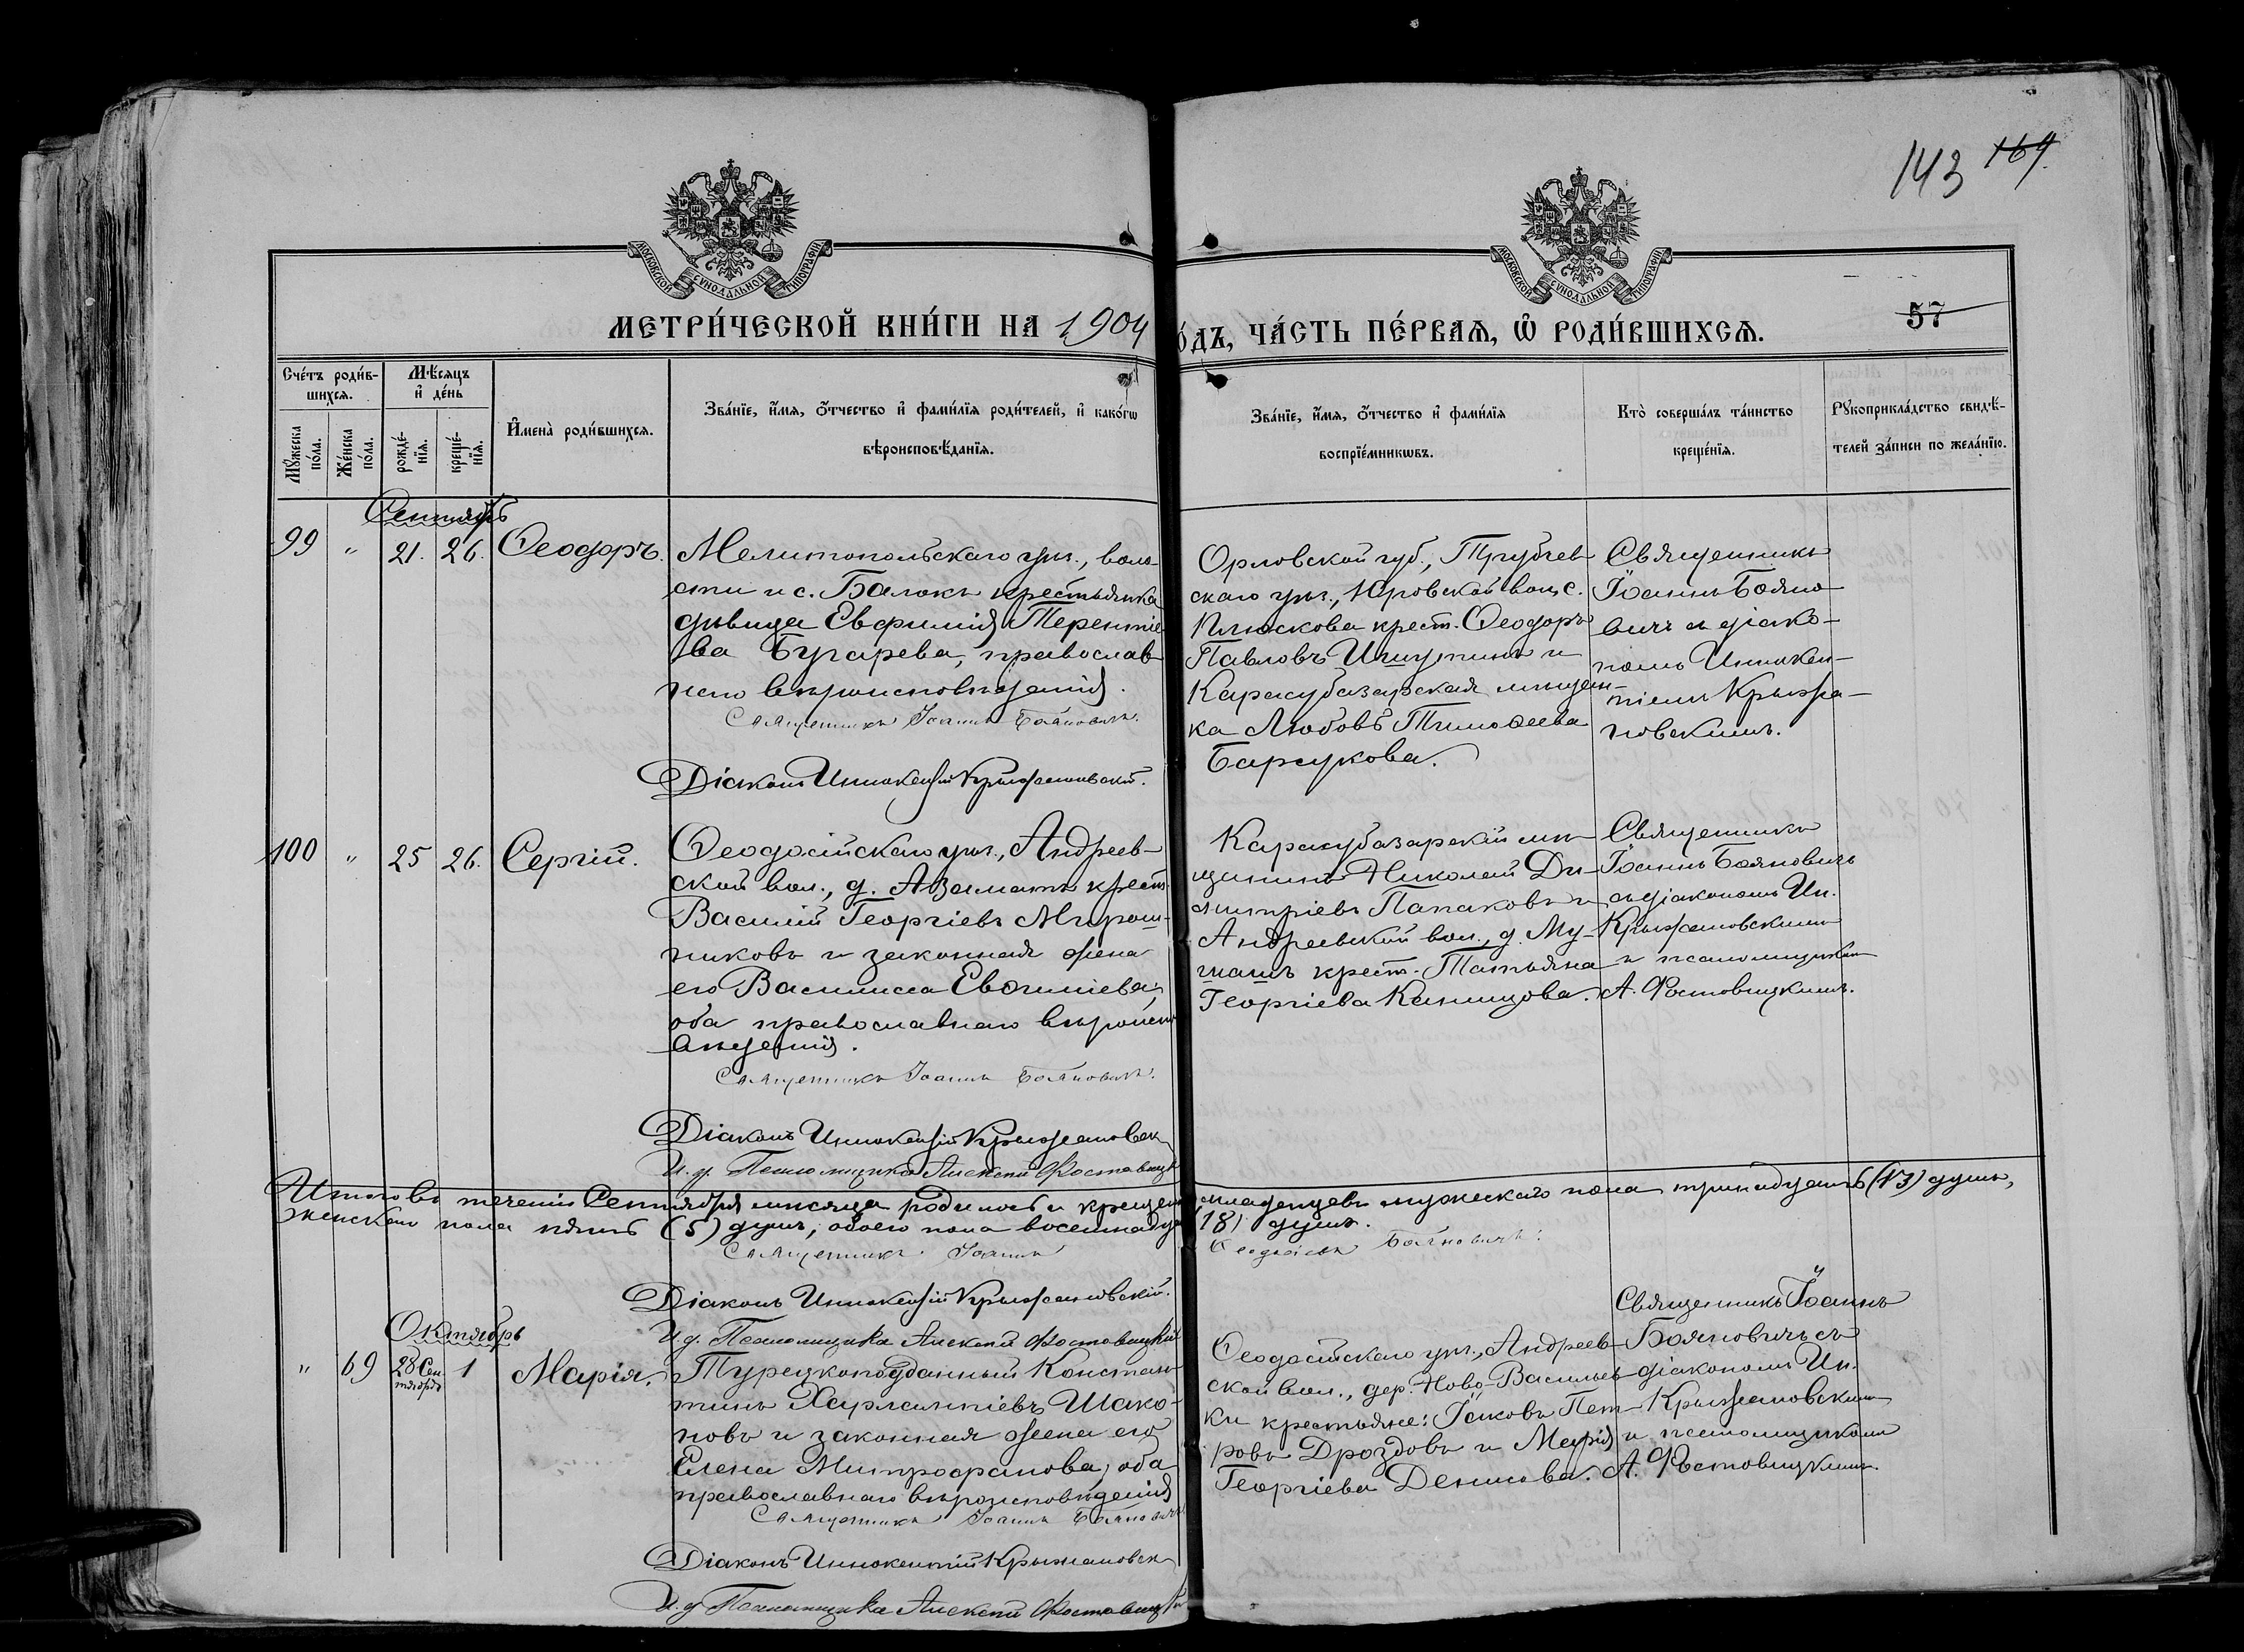 143 164.
МОСКОВСКОЙ СѴНОДАЛЬНОЙ ТИПОГРАФІИ
МОСКОВСКОЙ СѴНОДАЛЬНОЙ ТИПОГРАФІИ
57
МЕТРИ́ЧЕСКОЙ КНИ́ГИ НА 1904
ѻ́ДЪ, ЧА́СТЬ ПЕ́РВАѦ, Ѽ РОДИ́ВШИХСѦ.
Сче́тъ роди́в-
шихсѧ.
Мꙋ́жеска по́ла.
Же́нска по́ла.
Мѣ́сѧцъ
и҆ де́нь
рожде́-нїѧ.
креще́-нїѧ.
И҆мена̀ роди́вшихсѧ.
Зва́нїе, и҆́мѧ, ѻ҆́тчество и҆ фами́лїѧ роди́телей, и҆ како́гѡ
вѣроисповѣ́данїѧ.
Зва́нїе, и҆́мѧ, ѻ҆́тчество и҆ фами́лїѧ
воспрїе́мникѡвъ.
Кто̀ соверша́лъ та́инство
креще́нїѧ.
Рꙋкоприкла́дство свидѣ́-
телей за́писи по жела́нїю.
Сентябрь
99 " 21. 26. Ѳеодоръ.
Мелитопольскаго уѣз., воло-
сти и с. Балокъ крестьянка
дѣвица Евфимія Терентіе-
ва Бугарева, православ-
наго вѣроисповѣданія.
Священникъ Іоаннъ Бояновичъ.
Діаконъ Иннокентій Крыжановскій.
Орловской губ., Трубчев-
скаго уѣз., Юровской вол. с.
Плюскова крест. Ѳеодоръ
Павловъ Ишутинъ и
Карасубазарская мѣщан-
ка Любовь Тимоѳеева
Барсукова.
Священникъ
Іоаннъ Бояно-
вичъ съ діако-
номъ Иннокен-
тіемъ Крыжа-
новскимъ.
100 " 25 26. Сергій.
Ѳеодосійскаго уѣз., Андреев-
ской вол., д. Азаматъ крест.
Василій Георгіевъ Мирош-
никовъ и законная жена
его Василисса Евѳиміева;
оба православнаго вѣроиспо-
вѣданія.
Священникъ Іоаннъ Бояновичъ.
Діаконъ Иннокентій Крыжановск
И. д. Псаломщика Алексѣй Фостовицк
Карасубазарскій мѣ-
щанинъ Николай Ди-
митріевъ Папаковъ и
Андреевской вол., д. Му-
шашъ крест. Татьяна
Георгіева Канищова.
Священникъ
Іоаннъ Бояновичъ
съ діакономъ Ин.
Крыжановскимъ
и псаломщикомъ
А. Фостовицкимъ.
Итого въ теченіи Сентября мѣсяца родилось и крещено младенцевъ мужескаго пола тринадцать (13) душъ,
женскаго пола пять (5) душъ, обоего пола восемнадца 18) душъ.
Священникъ Іоаннъ Бояновичъ.
Діаконъ Иннокентій Крыжановскій.
И. д. Псаломщика Алексѣй Фостовицкій
Октябрь
" 69 28 Сен-тября 1 Марія.
Турецкоподданный Констан-
тинъ Харлампіевъ Шако-
новъ и законная жена его
Елена Митрофанова; оба
православнаго вѣроисповѣданія
Священникъ Іоаннъ Бояновичъ
Діаконъ Иннокентій Крыжановск
И. д. Псаломщика Алексѣй Фостовицкій
Ѳеодосійскаго уѣз., Андреев-
ской вол., дер. Ново-Васильев-
ки крестьяне: Іаковъ Пет-
ровъ Дроздовъ и Марія
Георгіева Денисова.
Священникъ Іоаннъ
Бояновичъ съ
діакономъ Ин.
Крыжановскимъ
и псаломщикомъ
А. Фостовицкимъ.